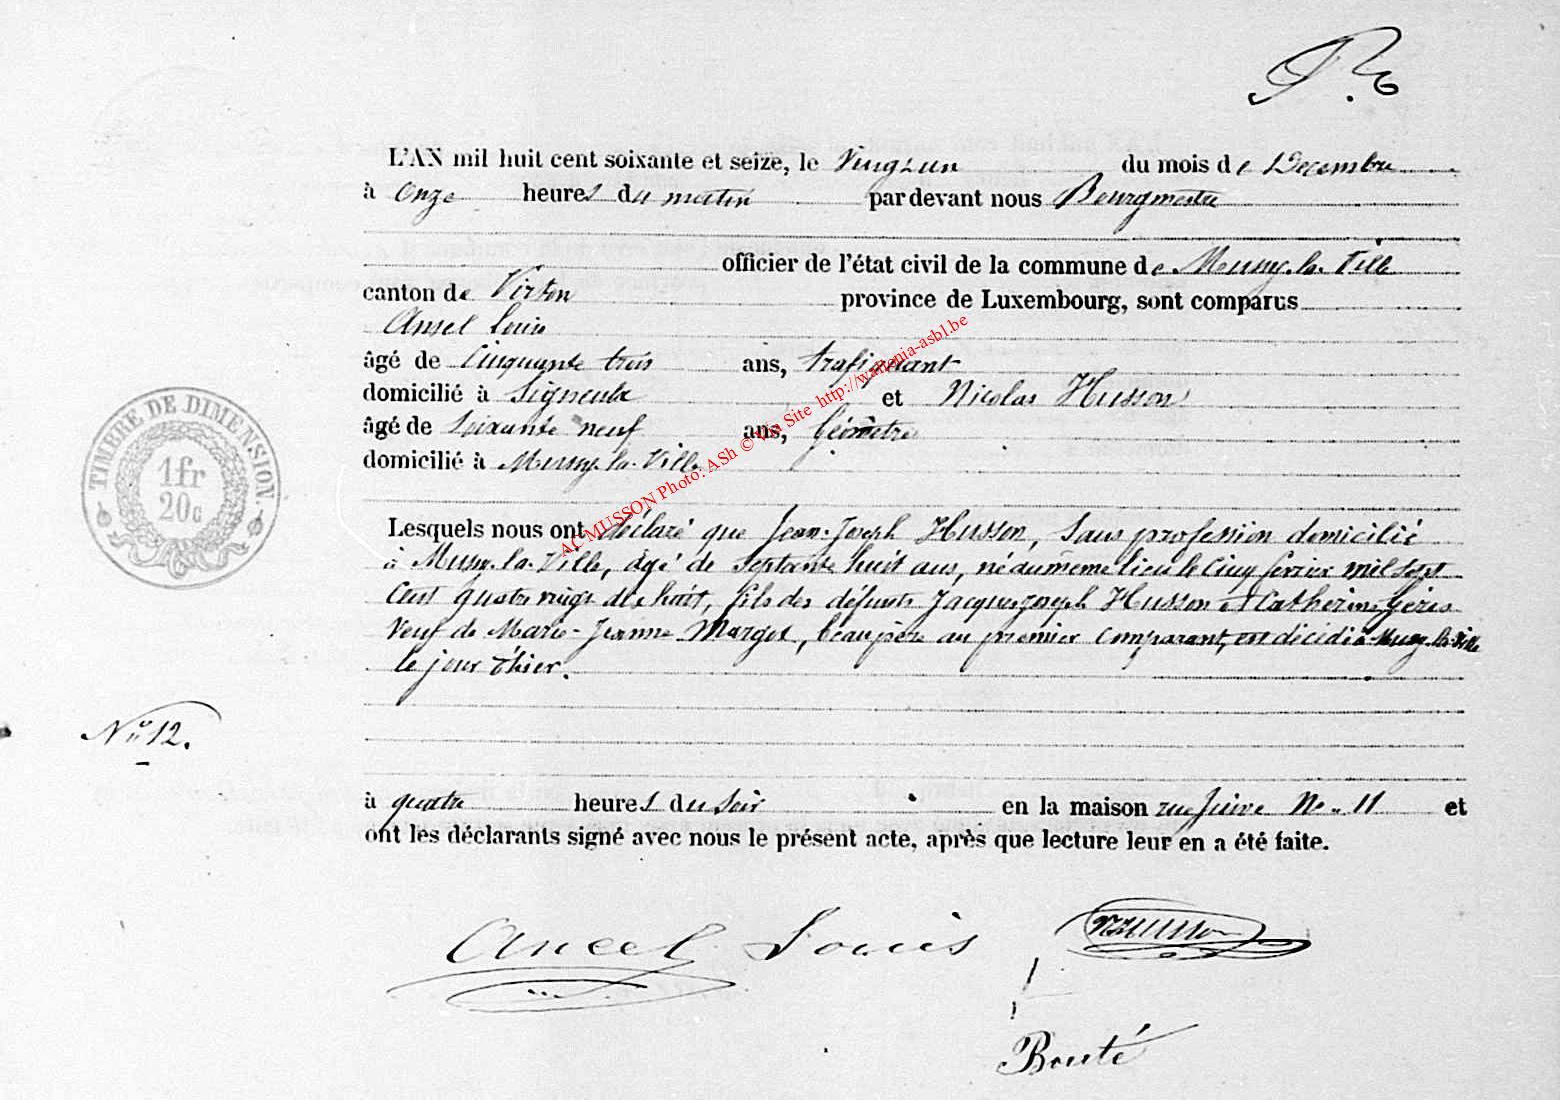 L'AN mil huit cent soixante et seize, le Vingt un du mois de Décembre
à Onze heures du matin pardevant nous Bourgmestre
officier de l'état civil de la commune de Mussy-la-Ville
canton de Virton province de Luxembourg, sont comparus
Ansel Louis
âgé de Cinquante trois ans, trafiquant
domicilié à Signeulx et Nicolas Husson
âgé de Soixante neuf ans, Géomètre
domicilié à Mussy-la-Ville
Lesquels nous ont déclaré que Jean-Joseph Husson, Sans profession domicilié
à Mussy-la-Ville, âgé de Septante huit ans, né au même lieu le Cinq février mil sept
Cent quatre vingt dix huit, fils des défunts Jacques Joseph Husson et Catherine
Veuf de Marie-Jeanne Margot, beau père au premier Comparant, est décédé à Mussy-la-Ville
le jour d'hier.
N° 12.
à quatre heures du Soir en la maison rue N° 11 et
ont les déclarants signé avec nous le présent acte, après que lecture leur en a été faite.
Ancel Louis NHusson
Bouté
TIMBRE DE DIMENSION.
1fr
20c
AC MUSSON Photo: ASh © Via Site http://wallonia-asbl.be